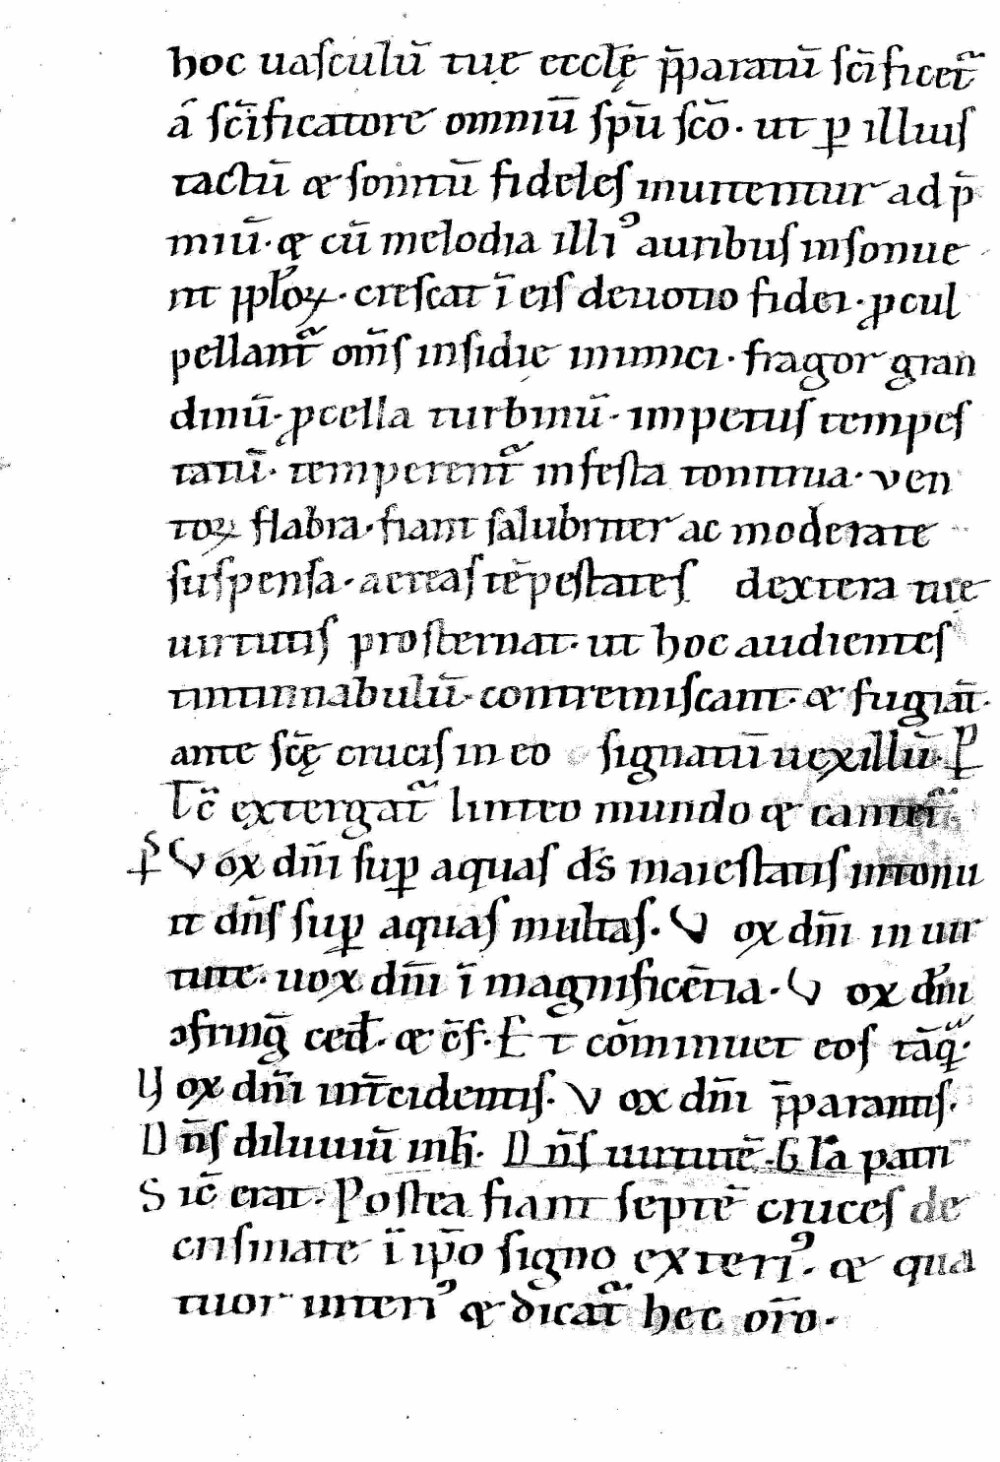 hoc uaſculū tuę ecclę p̄paratū ſc̄ificet᷑
á ſc̄ificatore omniū ſpū ſcō. ut ꝑ illiuſ
tactū & ſonitū fideleſ inuitentur ad p̄
miū. & cū melodia illiꝰ auribuſ inſonue
rit ppl̄oꝝ. creſcat ī eiſ deuotio fidei. ꝓcul
pellant᷑ om̄ſ inſidię inimici. fragor gran
dinū. ꝓcella turbinū. impetuſ tempeſ
tatū. temperent᷑ infeſta tonitrua. ven
toꝝ flabra. fiant ſalubriter ac moderate
ſuſpenſa. aereaſ tēpeſtateſ dextera tuę
uirtutiſ proſternat. ut hoc audienteſ
tintinnabulū. contremiſcant. & fugiāt.
ante ſcę̄ cruciſ in eo ſignatū uexillū. P
Tc̄ extergat᷑ linteo mundo & cantet᷑
P̃ Vox dn̄i ſuꝑ aquaſ dſ̄ maieſtatiſ intonu
it dn̄ſ ſuꝑ aquaſ multaſ. Vox dn̄i in uir
tute. uox dn̄i ī magnificētia. Vox dn̄i
ↄfrinḡ ced̄. & c̄ſ. Et cōminuet eoſ tāq̄.
Vox dn̄i int̄cidentiſ. Vox dn̄i p̄parantiſ.
Dn̄ſ diluuiū inh̄. Dn̄ſ uirtutē. Gl̄a patri
Sic̄ erat. Poſtea fiant ſeptē cruceſ de
criſmate ī ip̄o ſigno exteriꝰ. & qua
tuor interiꝰ & dicat᷑ hec or̄o.